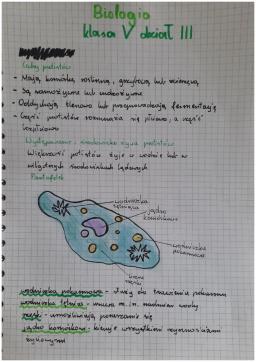 Biologia
klasa V dział III
Cechy protistów
- Mają komórkę roślinną, grzybową lub zwierzęcą
- Są samożywne lub cudzożywne
- Oddychają tlenowo lub przeprowadzają fermentację
- Część protistów rozmnaża się płciowo, a część
bezpłciowo
Występowanie i środowisko życia protistów
Większość protistów żyje w wodzie lub w
wilgotnych środowiskach lądowych
Pantofelek
wodniczka
tętniąca
jądro
komórkowe
wodniczka
pokarmowa
rzęski
wodniczka pokarmowa - służy do trawienia pokarmu
wodniczka tętniąca - usuwa m.in. nadmiar wody
rzęski - umożliwiają poruszanie się
jądro komórkowe - kieruje wszystkimi czynnościami
życiowymi